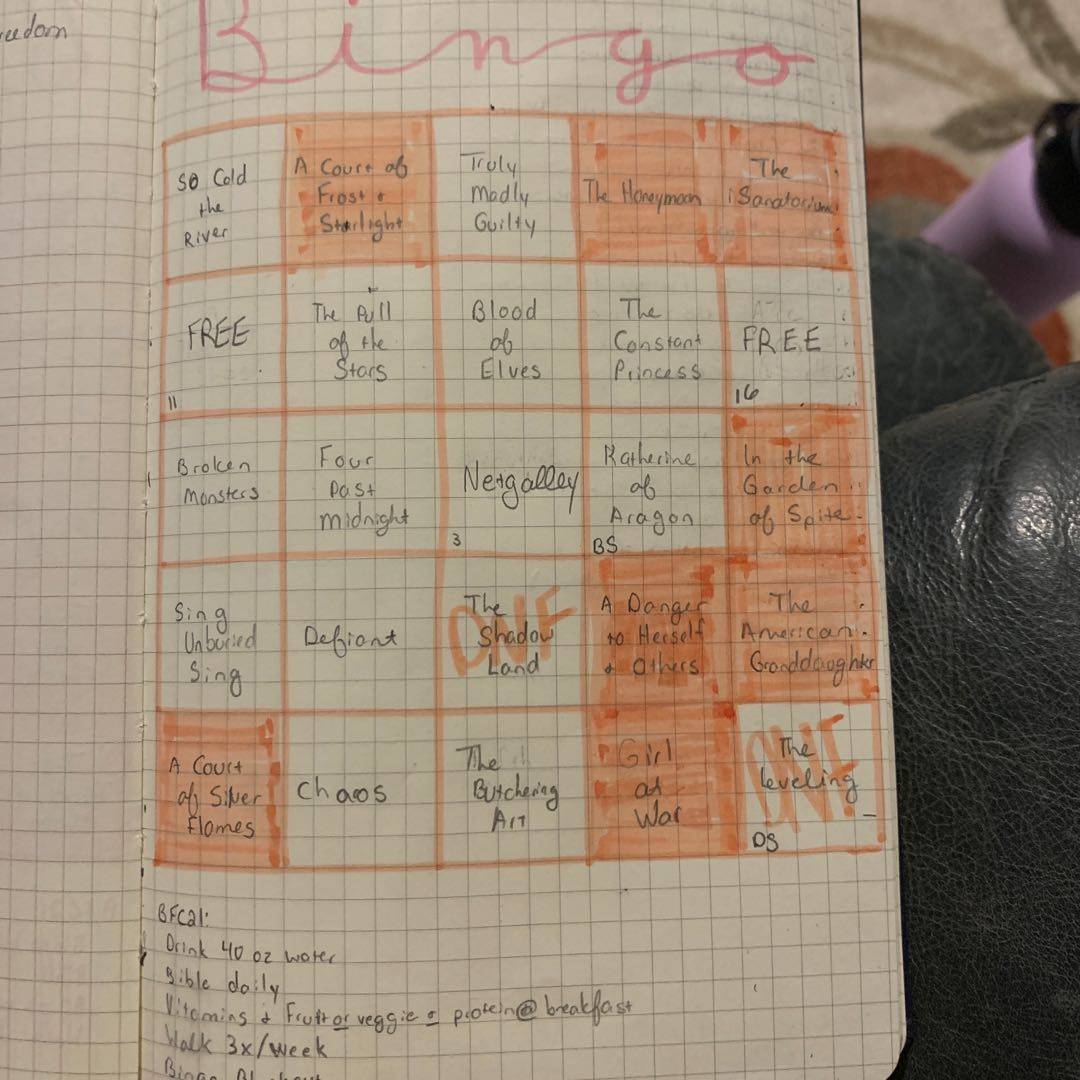 eedom
Bingo
So Cold
the
River
A Court of
Frost +
Starlight
Truly
Madly
Guilty
The Honeymoon
The
Sanatorium
FREE
11
The Pull
of the
Stars
Blood
of
Elves
The
Constant
Princess
FREE
16
Broken
Monsters
Four
Past
Midnight
Netgalley
3
Katherine
of
Aragon
BS
In the
Garden
of Spite
Sing
Unburied
Sing
Defiant
DNF
The
Shadow
Land
A Danger
to Herself
+ Others
The
American
Granddaughter
A Court
of Silver
Flames
Chaos
The
Butchering
Art
Girl
at
War
DNF
The
Leveling
DS
BFCal:
Drink 40 oz water
Bible daily
Vitamins + Fruit or veggie & protein @ breakfast
Walk 3x/week
Bingo